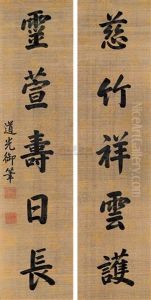 慈竹祥雲護
靈萱壽日長
道光御筆